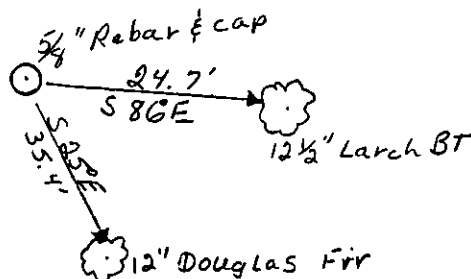 5/8" Rebar & cap
24.7'
S 86°E
12 1/2" Larch BT
S 25°E
35.4'
12" Douglas Fir